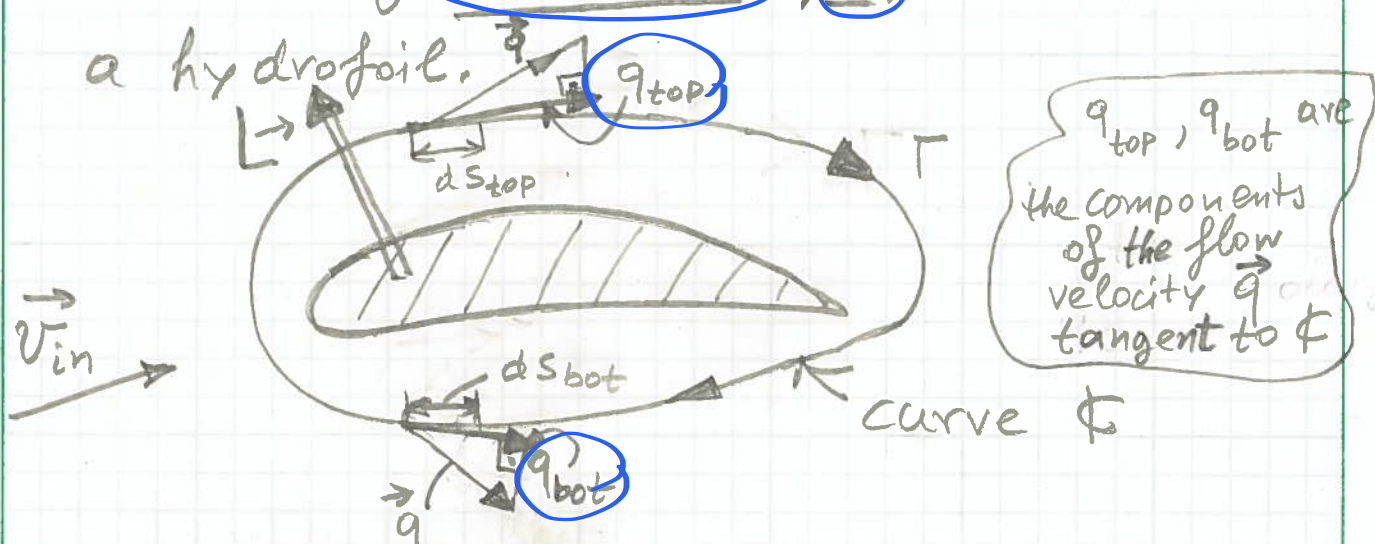 a hydrofoil.
q⃗
q_top
L
ds_top
Γ
q_top, q_bot are
the components
of the flow
velocity q⃗
tangent to ₵
V⃗_in
ds_bot
curve ₵
q_bot
q⃗